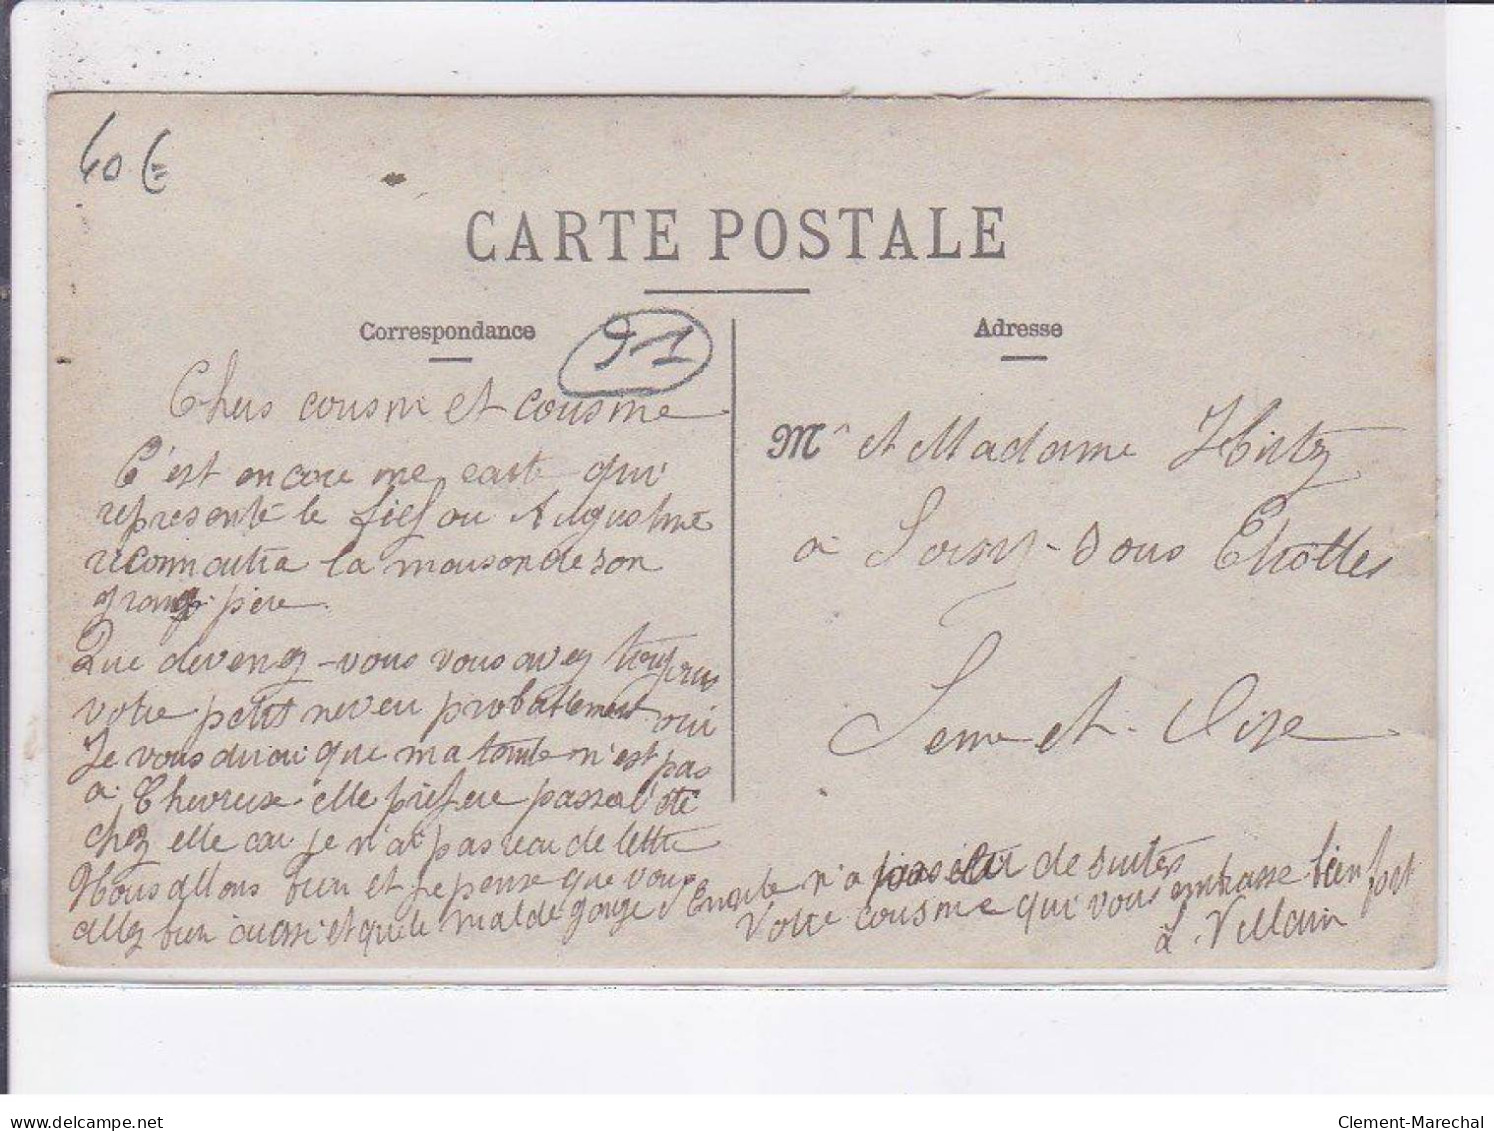 40 €
CARTE POSTALE
Correspondance
91
Adresse
Chers cousin et cousine
C'est encore une carte qui
représente le fief ou Augustine
reconnaitra la maison de son
grand père.
Que devenez-vous vous avez toujours
votre petit neveu probablement oui
Je vous dirai que ma tante n'est pas
à Chevreuse elle préfère passer l'été
chez elle car je n'ai pas reçu de lettre
Nous allons bien et je pense que vous
allez bien aussi et que le mal de gorge d'Emile n'a pas eu de suites
Votre cousine qui vous embrasse bien fort
L. Villain
Mr et Madame Hirtz
à Soisy-sous Etiolles
Seine et Oise
delcampe.net
Clement-Marechal